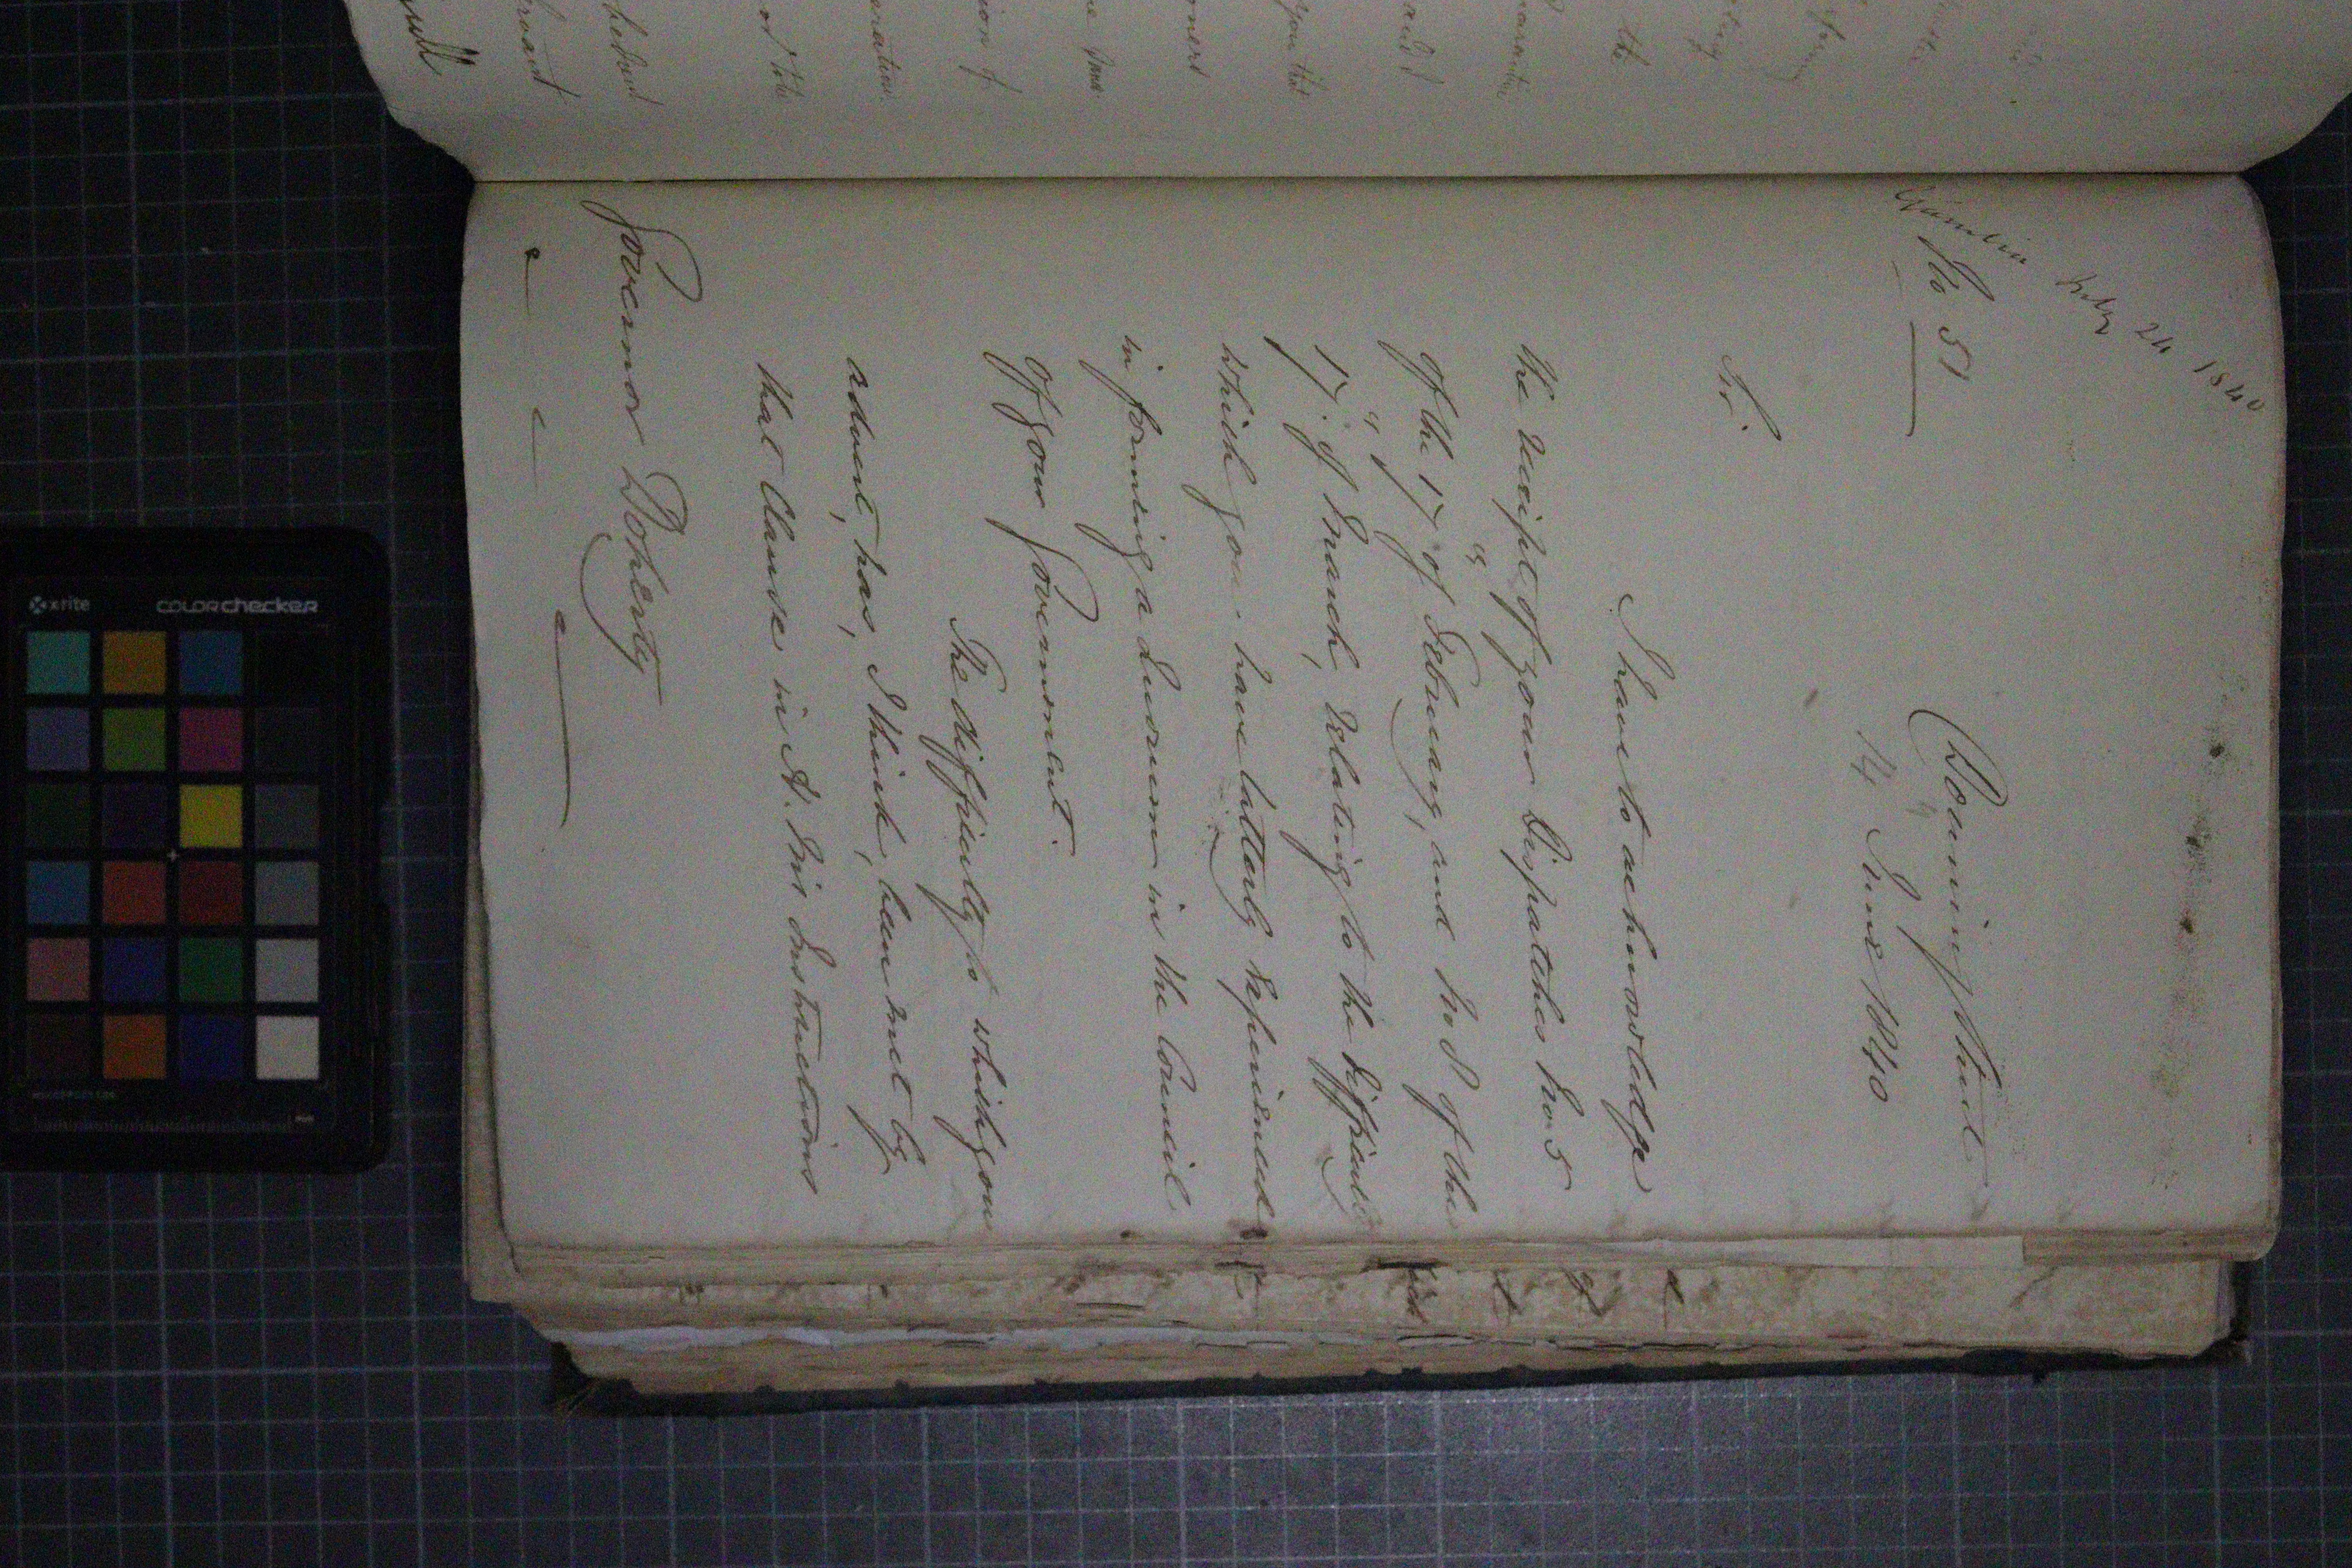 Gambia July 24 1840
No 51
Downing Street
14 June 1840
Sir
I have to acknowledge
the receipt of your Dispatches No 5
of the 17th of February, and No 8 of the
17th of March, relating to the difficulty
which you have latterly experienced
in forming a Quorum in the Council
of your Government.
The difficulty to which you
advert, has, I think, been met by
that Clause in H. M's Instructions
Governor Doherty
you that
and
the
x-rite
colorchecker